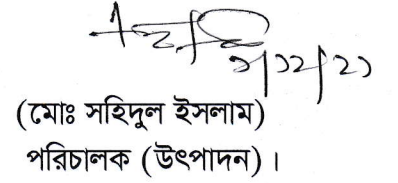 ১/১২/২১
(মোঃ সহিদুল ইসলাম)
পরিচালক (উৎপাদন)।